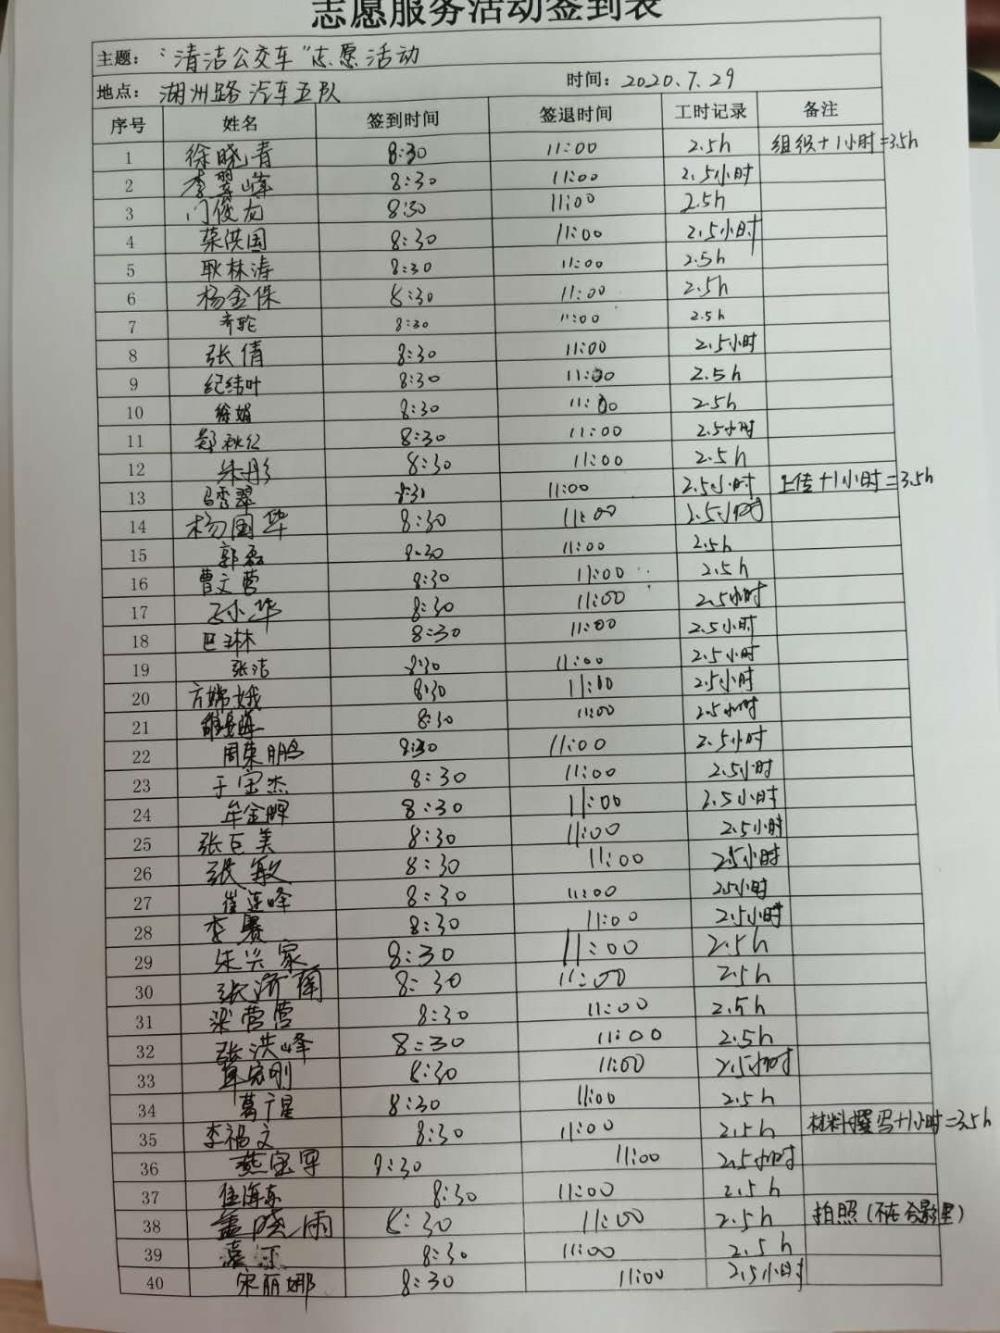 志愿服务活动签到表
主题：“清洁公交车”志愿活动
地点：湖州路汽车五队 时间：2020.7.29
序号 姓名 签到时间 签退时间 工时记录 备注
1 徐晓青 8:30 11:00 2.5h 组织+1小时=3.5h
2 李翠峰 8:30 11:00 2.5小时
3 门俊龙 8:30 11:00 2.5h
4 荣洪国 8:30 11:00 2.5小时
5 耿林涛 8:30 11:00 2.5h
6 杨金保 8:30 11:00 2.5h
7 8:30 11:00 2.5h
8 张倩 8:30 11:00 2.5小时
9 纪结叶 8:30 11:00 2.5h
10 徐娟 8:30 11:00 2.5h
11 8:30 11:00 2.5小时
12 朱彤 8:30 11:00 2.5h
13 马秀翠 8:30 11:00 2.5小时 上传+1小时=3.5h
14 杨国华 8:30 11:00 2.5小时
15 郭磊 8:30 11:00 2.5h
16 曹文营 8:30 11:00 2.5h
17 小华 8:30 11:00 2.5小时
18 巴琳 8:30 11:00 2.5小时
19 张洁 8:30 11:00 2.5小时
20 方嫦娥 8:30 11:00 2.5小时
21 8:30 11:00 2.5小时
22 周荣鹏 8:30 11:00 2.5小时
23 于宝杰 8:30 11:00 2.5小时
24 牟金牌 8:30 11:00 2.5小时
25 张巨美 8:30 11:00 2.5小时
26 张敏 8:30 11:00 2.5小时
27 崔连峰 8:30 11:00 2.5小时
28 李赛 8:30 11:00 2.5小时
29 朱兴家 8:30 11:00 2.5h
30 张济南 8:30 11:00 2.5h
31 梁营营 8:30 11:00 2.5h
32 张洪峰 8:30 11:00 2.5h
33 8:30 11:00 2.5小时
34 葛广星 8:30 11:00 2.5h
35 李福文 8:30 11:00 2.5h 材料撰写+1小时=3.5h
36 燕宝军 8:30 11:00 2.5小时
37 任海东 8:30 11:00 2.5h
38 孟晓雨 8:30 11:00 2.5h 拍照(不在合影里)
39 8:30 11:00 2.5h
40 宋丽娜 8:30 11:00 2.5小时